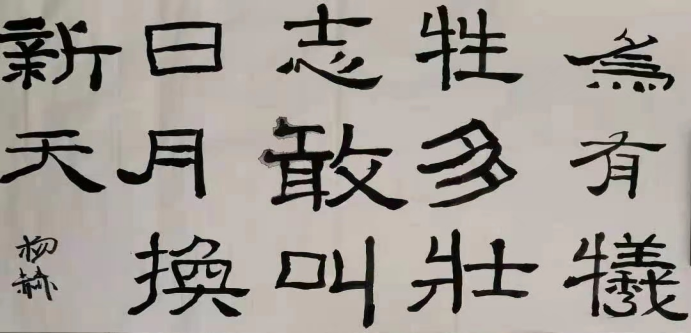 為有犧
牲多壯
志敢叫
日月換
新天